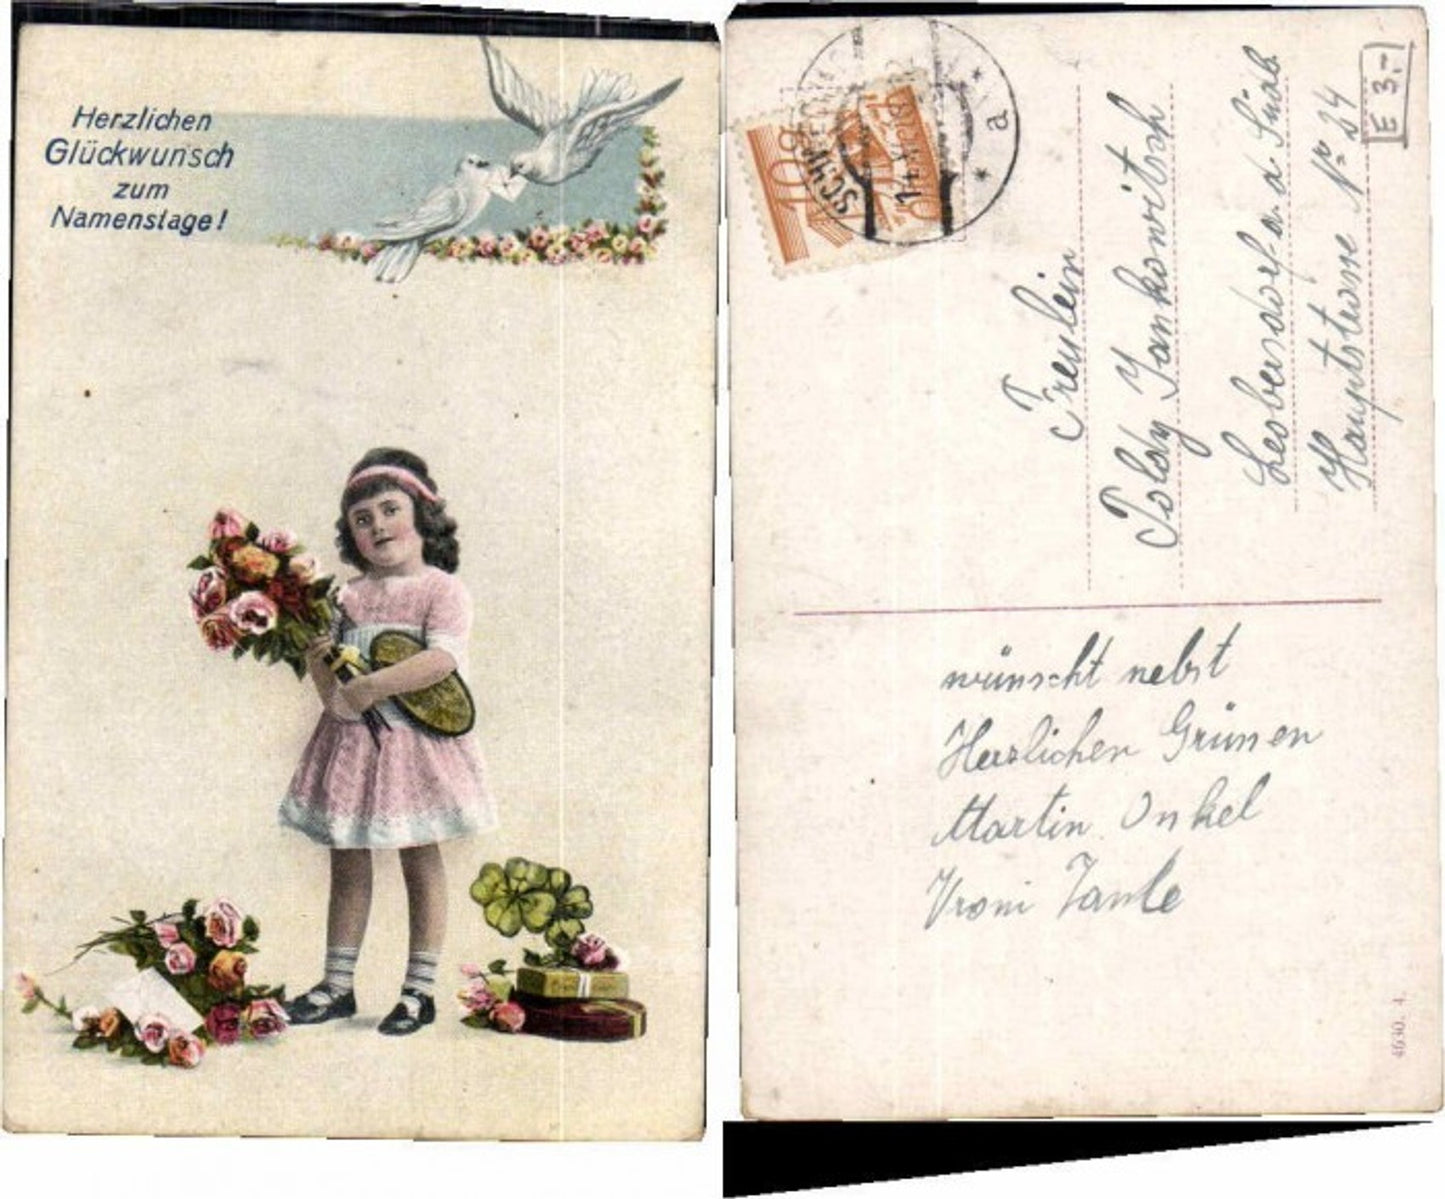 Herzlichen
Glückwunsch
zum
Namenstage!
a
E 3,-
Freulein
Poldy Jankowitsch
Leobersdorf a. d. Südb
Hauptstrasse Nr 24
wünscht nebst
Herzlichen Grüssen
Martin Onkel
Vroni Tante
4630. 4.